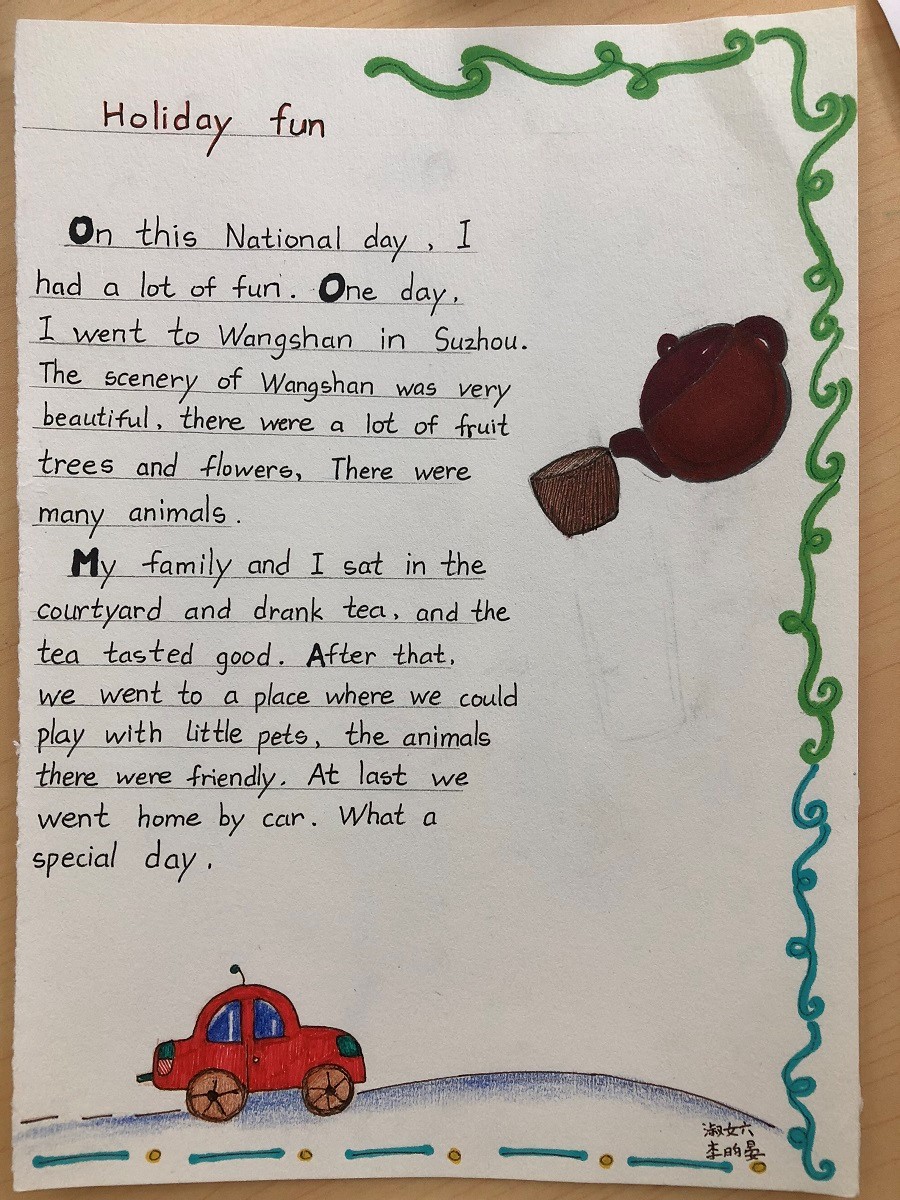 Holiday fun
On this National day, I
had a lot of fun. One day,
I went to Wangshan in Suzhou.
The scenery of Wangshan was very
beautiful, there were a lot of fruit
trees and flowers, There were
many animals.
My family and I sat in the
courtyard and drank tea, and the
tea tasted good. After that,
we went to a place where we could
play with little pets, the animals
there were friendly. At last we
went home by car. What a
special day.
淑女六
李昀晏